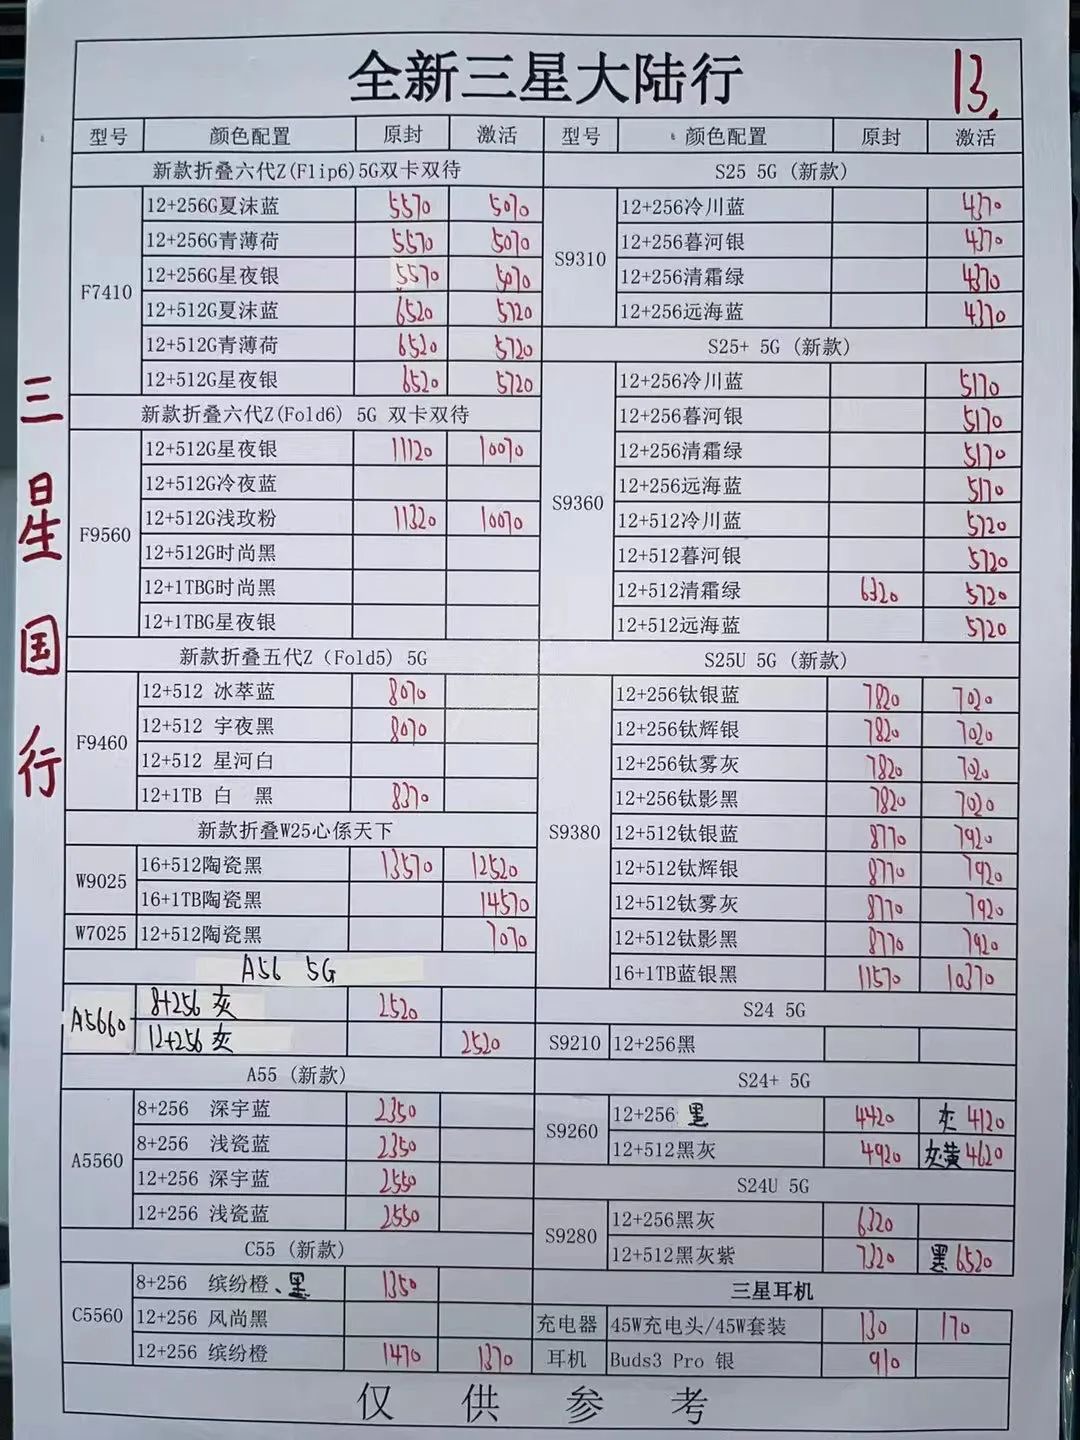 全新三星大陆行
13.
三星国行
型号 颜色配置 原封 激活
新款折叠六代Z(Flip6)5G双卡双待
F7410
12+256G夏沫蓝 5570 5070
12+256G青薄荷 5570 5070
12+256G星夜银 5570 5070
12+512G夏沫蓝 6520 5720
12+512G青薄荷 6520 5720
12+512G星夜银 6520 5720
新款折叠六代Z(Fold6) 5G 双卡双待
F9560
12+512G星夜银 11120 10070
12+512G冷夜蓝
12+512G浅玫粉 11320 10070
12+512G时尚黑
12+1TBG时尚黑
12+1TBG星夜银
新款折叠五代Z（Fold5）5G
F9460
12+512 冰萃蓝 8070
12+512 宇夜黑 8070
12+512 星河白
12+1TB 白 黑 8370
新款折叠W25心係天下
W9025
16+512陶瓷黑 13570 12520
16+1TB陶瓷黑 14570
W7025 12+512陶瓷黑 7070
A56 5G
A5660
8+256 灰 2520
12+256 灰 2520
A55 (新款)
A5560
8+256 深宇蓝 2350
8+256 浅瓷蓝 2350
12+256 深宇蓝 2550
12+256 浅瓷蓝 2550
C55 (新款)
C5560
8+256 缤纷橙、黑 1350
12+256 风尚黑
12+256 缤纷橙 1470 1370
型号 颜色配置 原封 激活
S25 5G (新款)
S9310
12+256冷川蓝 4370
12+256暮河银 4370
12+256清霜绿 4370
12+256远海蓝 4370
S25+ 5G (新款)
S9360
12+256冷川蓝 5170
12+256暮河银 5170
12+256清霜绿 5170
12+256远海蓝 5170
12+512冷川蓝 5720
12+512暮河银 5720
12+512清霜绿 6320 5720
12+512远海蓝 5720
S25U 5G (新款)
S9380
12+256钛银蓝 7820 7020
12+256钛辉银 7820 7020
12+256钛雾灰 7820 7020
12+256钛影黑 7820 7020
12+512钛银蓝 8770 7920
12+512钛辉银 8770 7920
12+512钛雾灰 8770 7920
12+512钛影黑 8770 7920
16+1TB蓝银黑 11570 10370
S24 5G
S9210 12+256黑
S24+ 5G
S9260
12+256 黑 4420 灰 4120
12+512黑灰 4920 灰黄 4620
S24U 5G
S9280
12+256黑灰 6320
12+512黑灰紫 7320 黑 6520
三星耳机
充电器 45W充电头/45W套装 130 170
耳机 Buds3 Pro 银 910
仅供参考